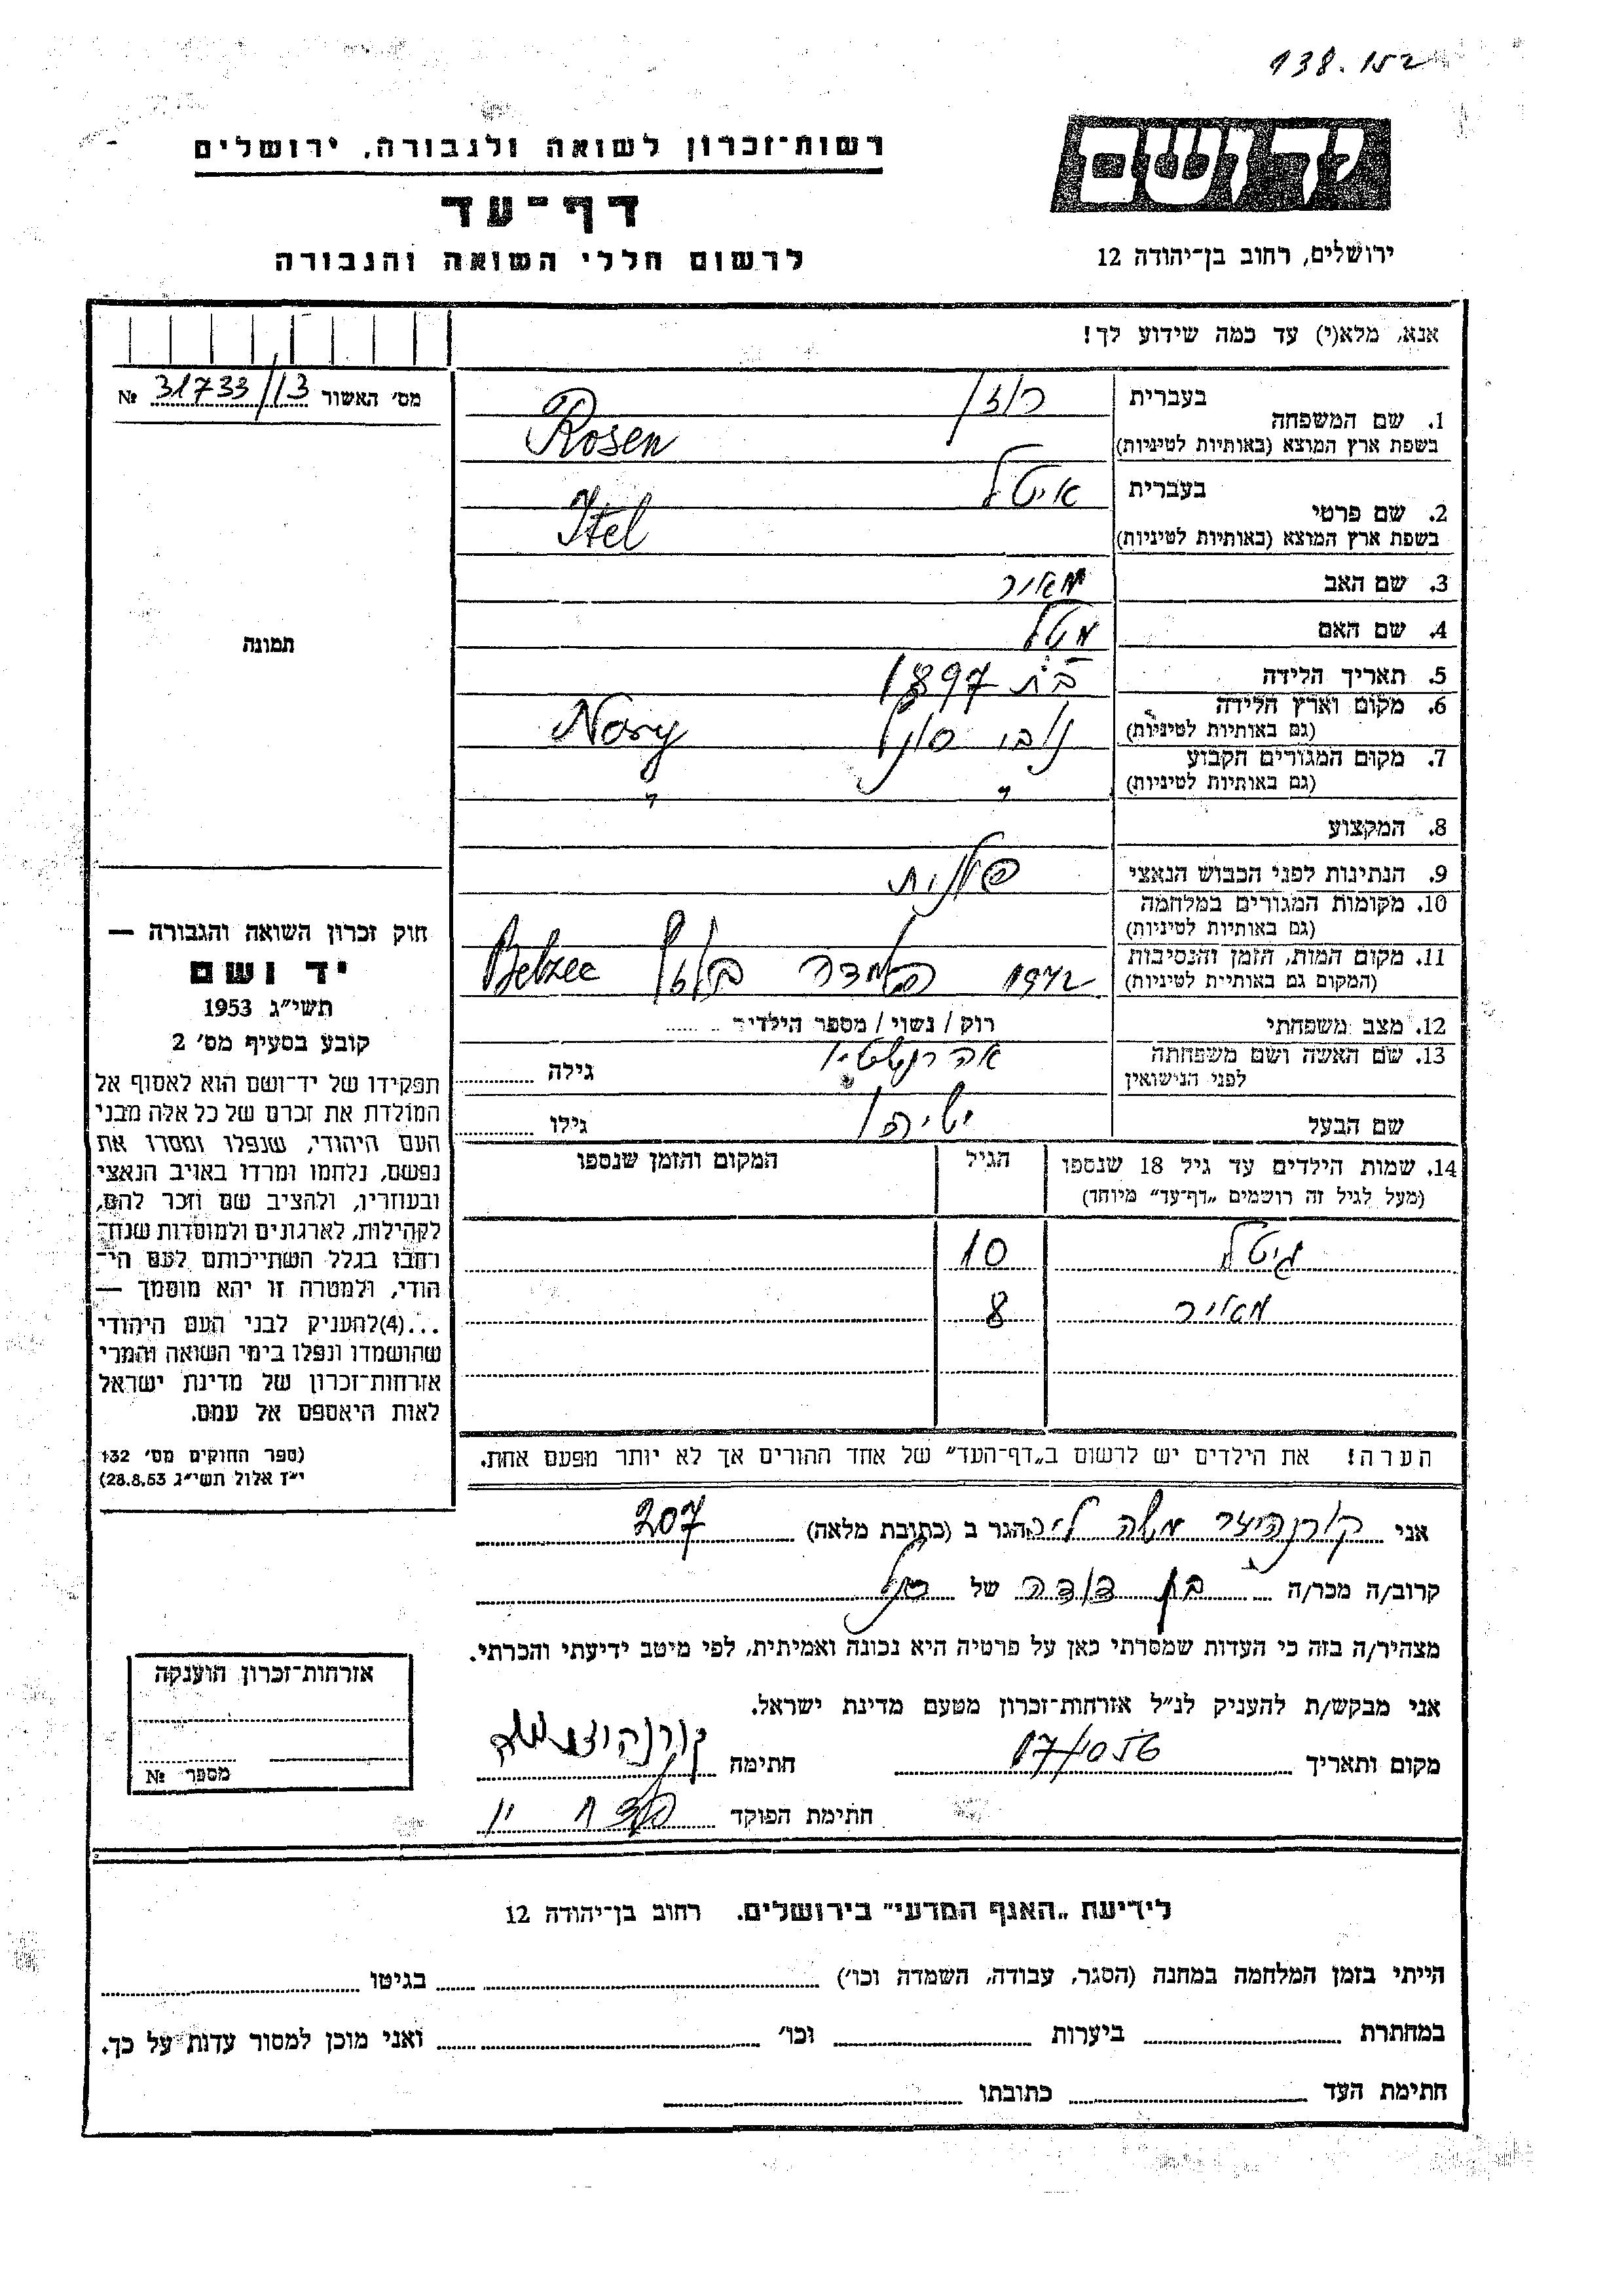 138.152
יד ושם
רשות־זכרון לשואה ולגבורה, ירושלים
דף־עד
לרשום חללי השואה והגבורה
ירושלים, רחוב בן־יהודה 12
אנא, מלא(י) עד כמה שידוע לך!
מס׳ האשור 31733/13 №
תמונה
חוק זכרון השואה והגבורה —
יד ושם
תשי״ג 1953
קובע בסעיף מס׳ 2
תפקידו של יד־ושם הוא לאסוף אל
המולדת את זכרם של כל אלה מבני
העם היהודי, שנפלו ומסרו את
נפשם, נלחמו ומרדו באויב הנאצי
ובעוזריו, ולהציב שם וזכר להם,
לקהילות, לארגונים ולמוסדות שנח־
רחבו בגלל השתייכותם לעם הי־
הודי, ולמטרה זו יהא מוסמך —
...(4)להעניק לבני העם היהודי
שהושמדו ונפלו בימי השואה והמרי
אזרחות־זכרון של מדינת ישראל
לאות היאספם אל עמם.
(ספר החוקים מס׳ 132
י״ז אלול תשי״ג 28.8.53)
בעברית רוזן
1. שם המשפחה
בשפת ארץ המוצא (באותיות לטיניות) Rosen
בעברית איטל
2. שם פרטי
בשפת ארץ המוצא (באותיות לטיניות) Itel
3. שם האב מאיר
4. שם האם
5. תאריך הלידה בת 1897
6. מקום וארץ הלידה
(גם באותיות לטיניות)
7. מקום המגורים הקבוע
(גם באותיות לטיניות) " "
8. המקצוע
9. הנתינות לפני הכבוש הנאצי פולנית
10. מקומות המגורים במלחמה
(גם באותיות לטיניות)
11. מקום המות, הזמן והנסיבות
(המקום גם באותיית לטיניות) 1942 בלזץ Belzec
12. מצב משפחתי רוק / נשוי / מספר הילדים
13. שם האשה ושם משפחתה
לפני הנישואין גילה
שם הבעל גילו
14. שמות הילדים עד גיל 18 שנספו הגיל המקום והזמן שנספו
(מעל לגיל זה רושמים „דף־עד״ מיוחד)
גיטל 10
מאיר 8
הערה! את הילדים יש לרשום ב„דף־העד״ של אחד ההורים אך לא יותר מפעם אחת.
אני קורנהויזר משה הגר ב (כתובת מלאה) 207
קרוב/ה מכר/ה בן דודה של
מצהיר/ה בזה כי העדות שמסרתי כאן על פרטיה היא נכונה ואמיתית, לפי מיטב ידיעתי והכרתי.
אני מבקש/ת להעניק לנ״ל אזרחות־זכרון מטעם מדינת ישראל.
מקום ותאריך חתימה
חתימת הפוקד
אזרחות־זכרון הוענקה
מספר №
לידיעת „האגף המדעי״ בירושלים. רחוב בן־יהודה 12
הייתי בזמן המלחמה במחנה (הסגר, עבודה, השמדה וכו׳) בגיטו
במחתרת ביערות וכו׳ ואני מוכן למסור עדות על כך.
חתימת העד כתובתו